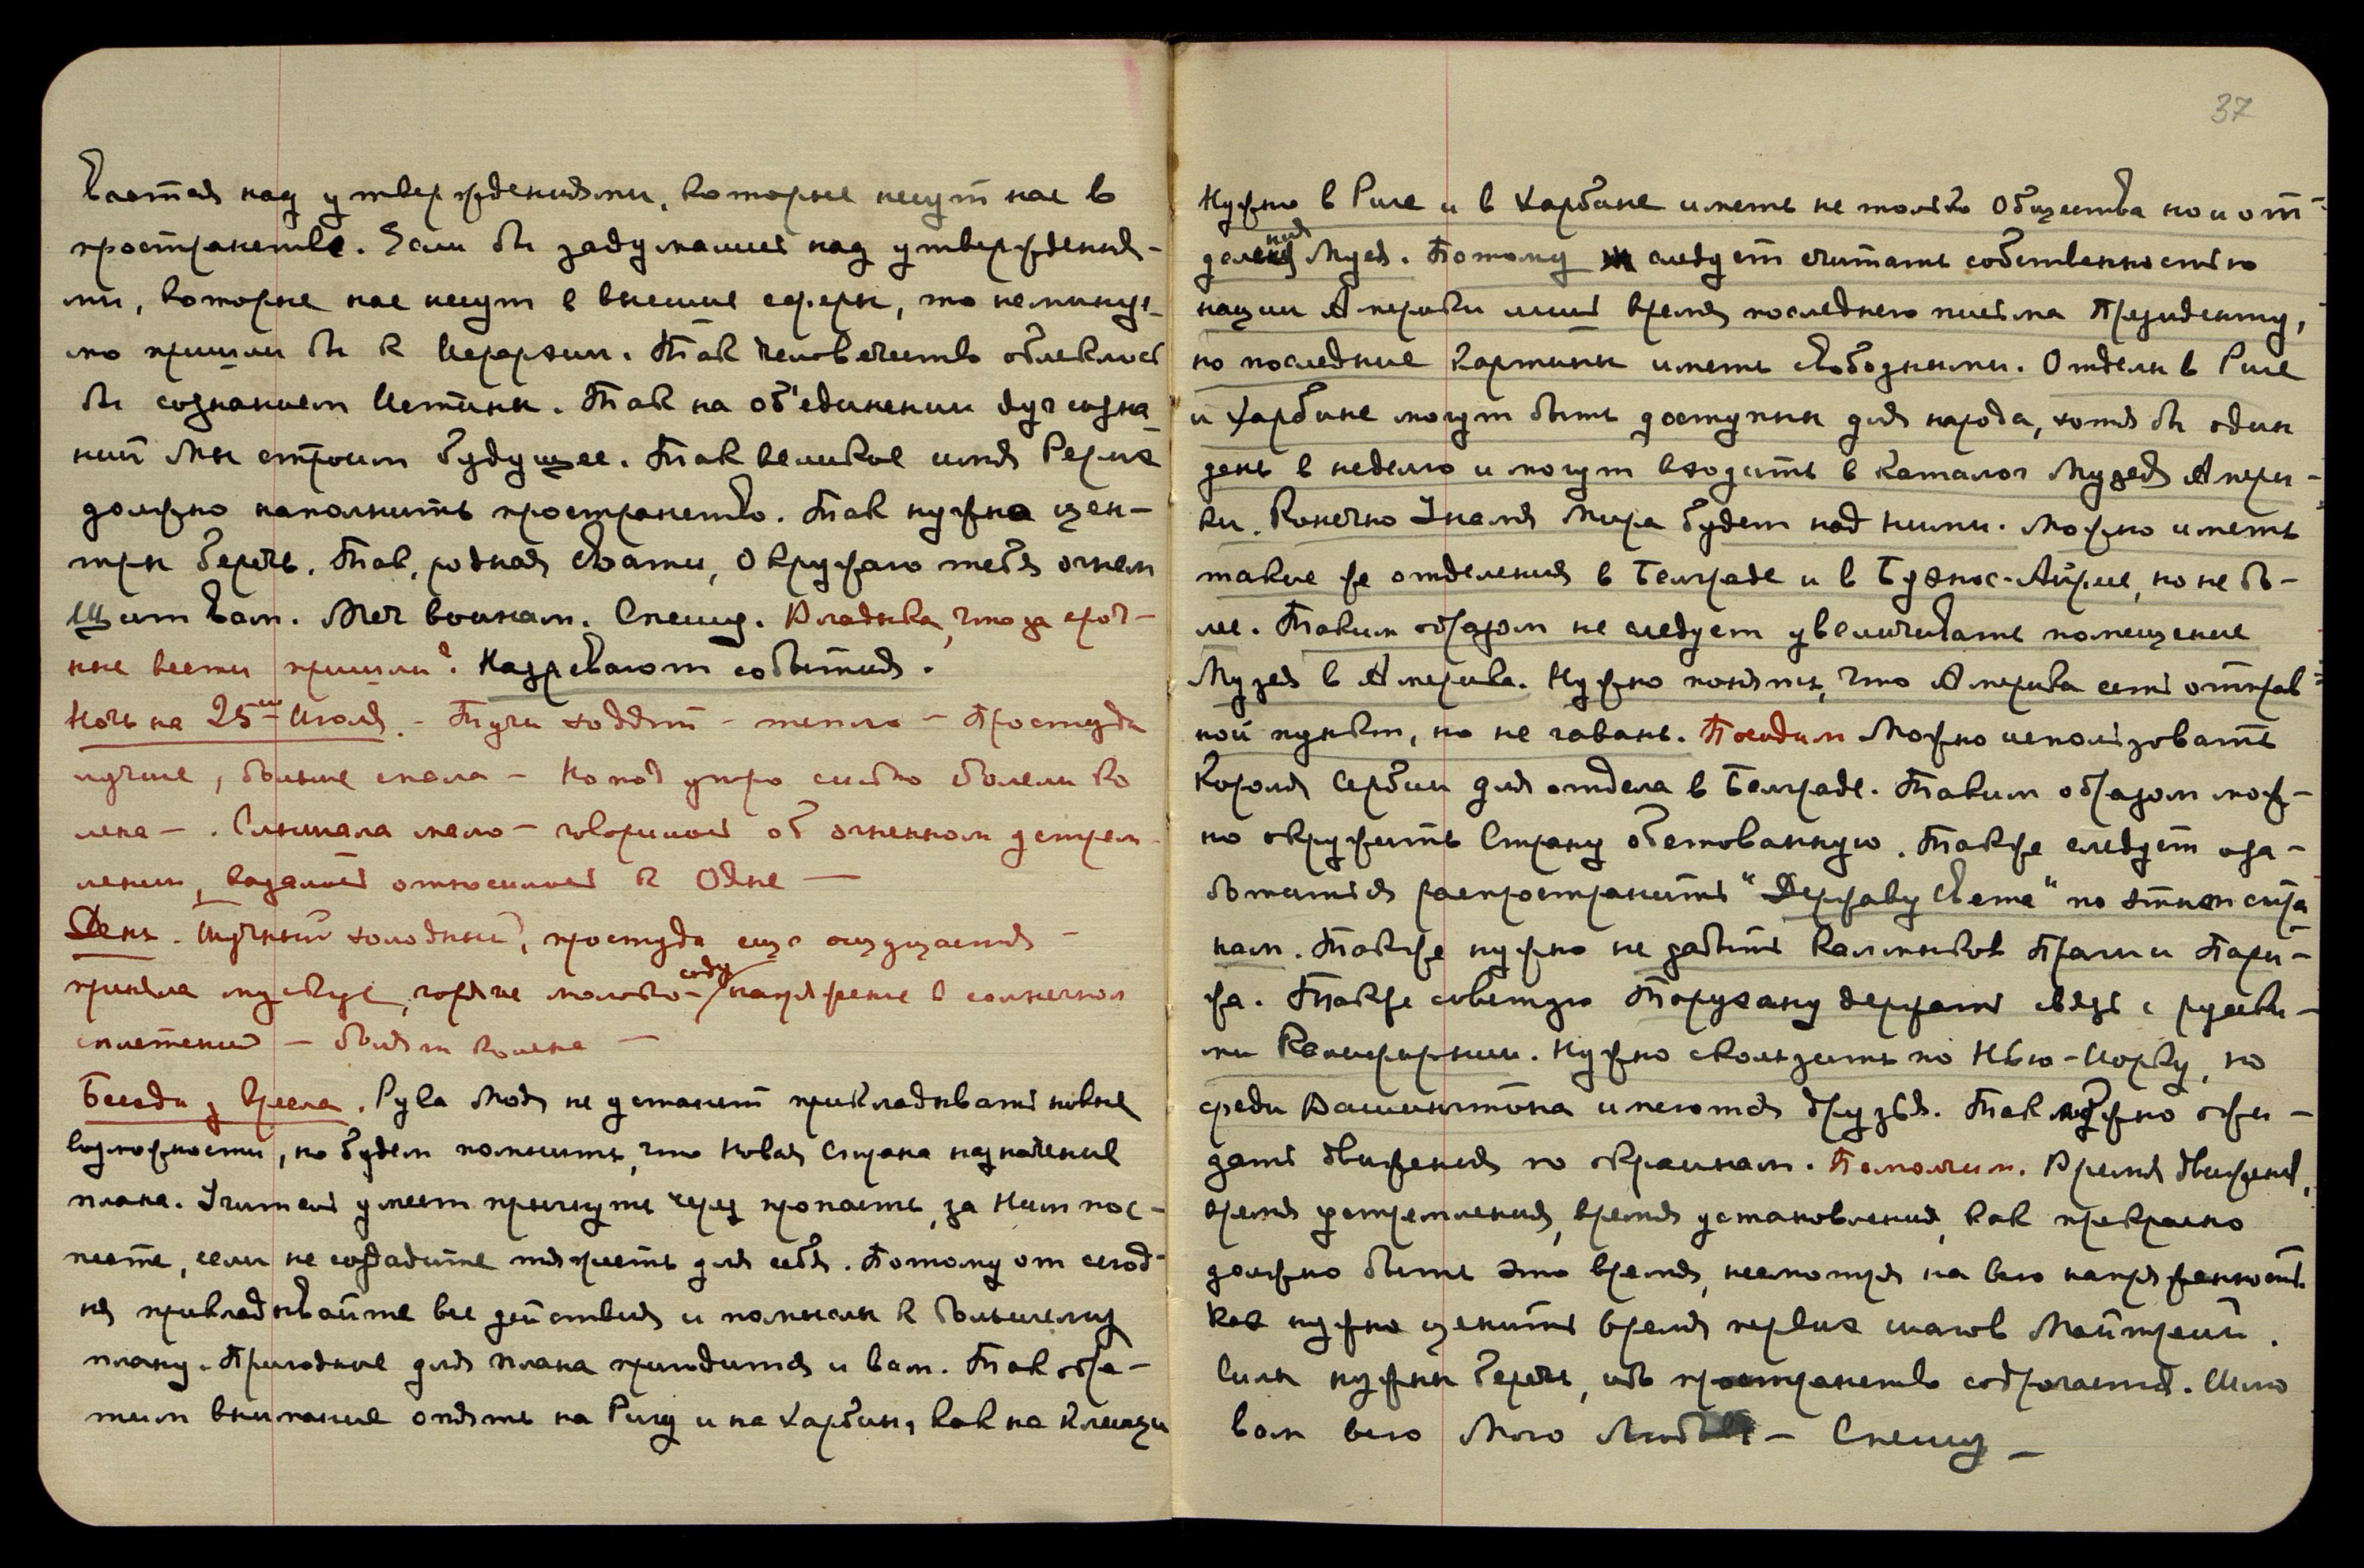 вается над утверждениями, которые несут нас в
пространстве. Если бы задумались над утверждения-
ми, которые нас несут в высшие сферы, то неминуе-
мо пришли бы к Иерархии. Так человечество облеклось
бы сознанием Истины. Так на об'единении душ и созна-
ний Мы строим будущее. Так великое имя Рерих
должно наполнить пространство. Так нужно цен-
тры беречь. Так, родная Свати, окружаю тебя огнем
Щит вам. Меч воинам. Спешу. Владыка, что за сроч-
ные вести пришли? Назревают события.
Ночь на 25ое Июля. – Тучи ходят – тепло – Простуда
лучше, больше спала – Но под утро сильно болели ко
лена – . Слышала мало – говорилось об огненном устрем-
лении, казалось относилось к Одне —
День. Тучный холодный, простуда еще ощущается –
приняла мускус, горячее молоко – соду / напряжение в солнечном
сплетении – болят колена —
Беседа у кресла. Рука Моя не устанет прикладывать новые
возможности, но будем помнить, что Новая Страна назначение
плана. Учитель умеет прыгнуть через пропасть, за Ним пос-
пеете, если не создадите тяжесть для себя. Потому от сегод-
ня прикладывайте все действия и помыслы к большему
плану. Пригодное для плана пригодится и вам. Так обра-
тим внимание опять на Ригу и на Харбин, как на клещи
37
Нужно в Риге и в Харбине иметь не только Общества но и от-
деления Музея. Потому следует считать собственностью
нации Америки лишь время последнего письма Президенту,
но последние картины иметь свободными. Отделы в Риге
и Харбине могут быть доступны для народа, хотя бы один
день в неделю и могут входить в каталог Музея Амери-
ки. Конечно Знамя Мира будет над ними. Можно иметь
такие же отделения в Белграде и в Буэнос-Айрисе, но не бо-
лее. Таким образом не следует увеличивать помещение
Музея в Америке. Нужно понять, что Америка есть отправ-
ной пункт, но не гавань. Посидим Можно использовать
Короля Сербии для отдела в Белграде. Таким образом мож-
но окружить Страну обетованную. Также следует оза-
ботиться распространить "Державу Света" по этим стра
нам. Также нужно не забыть калмыков Праги и Пари-
жа. Также советую Порухану держать связь с русски-
ми Калифорнии. Нужно скользить по Нью-Иорку, но
среди Вашингтона имеются друзья. Так можно ожи-
дать движения по окраинам. Помолчим. Время движения,
время устремления, время установления, как прекрасно
должно быть это время, несмотря на всю напряженность.
Как нужно ценить время первых шагов Майтрейи.
Силы нужны беречь, ибо пространство содрогается. Шлю
вам всю Мою Любовь – Спешу –